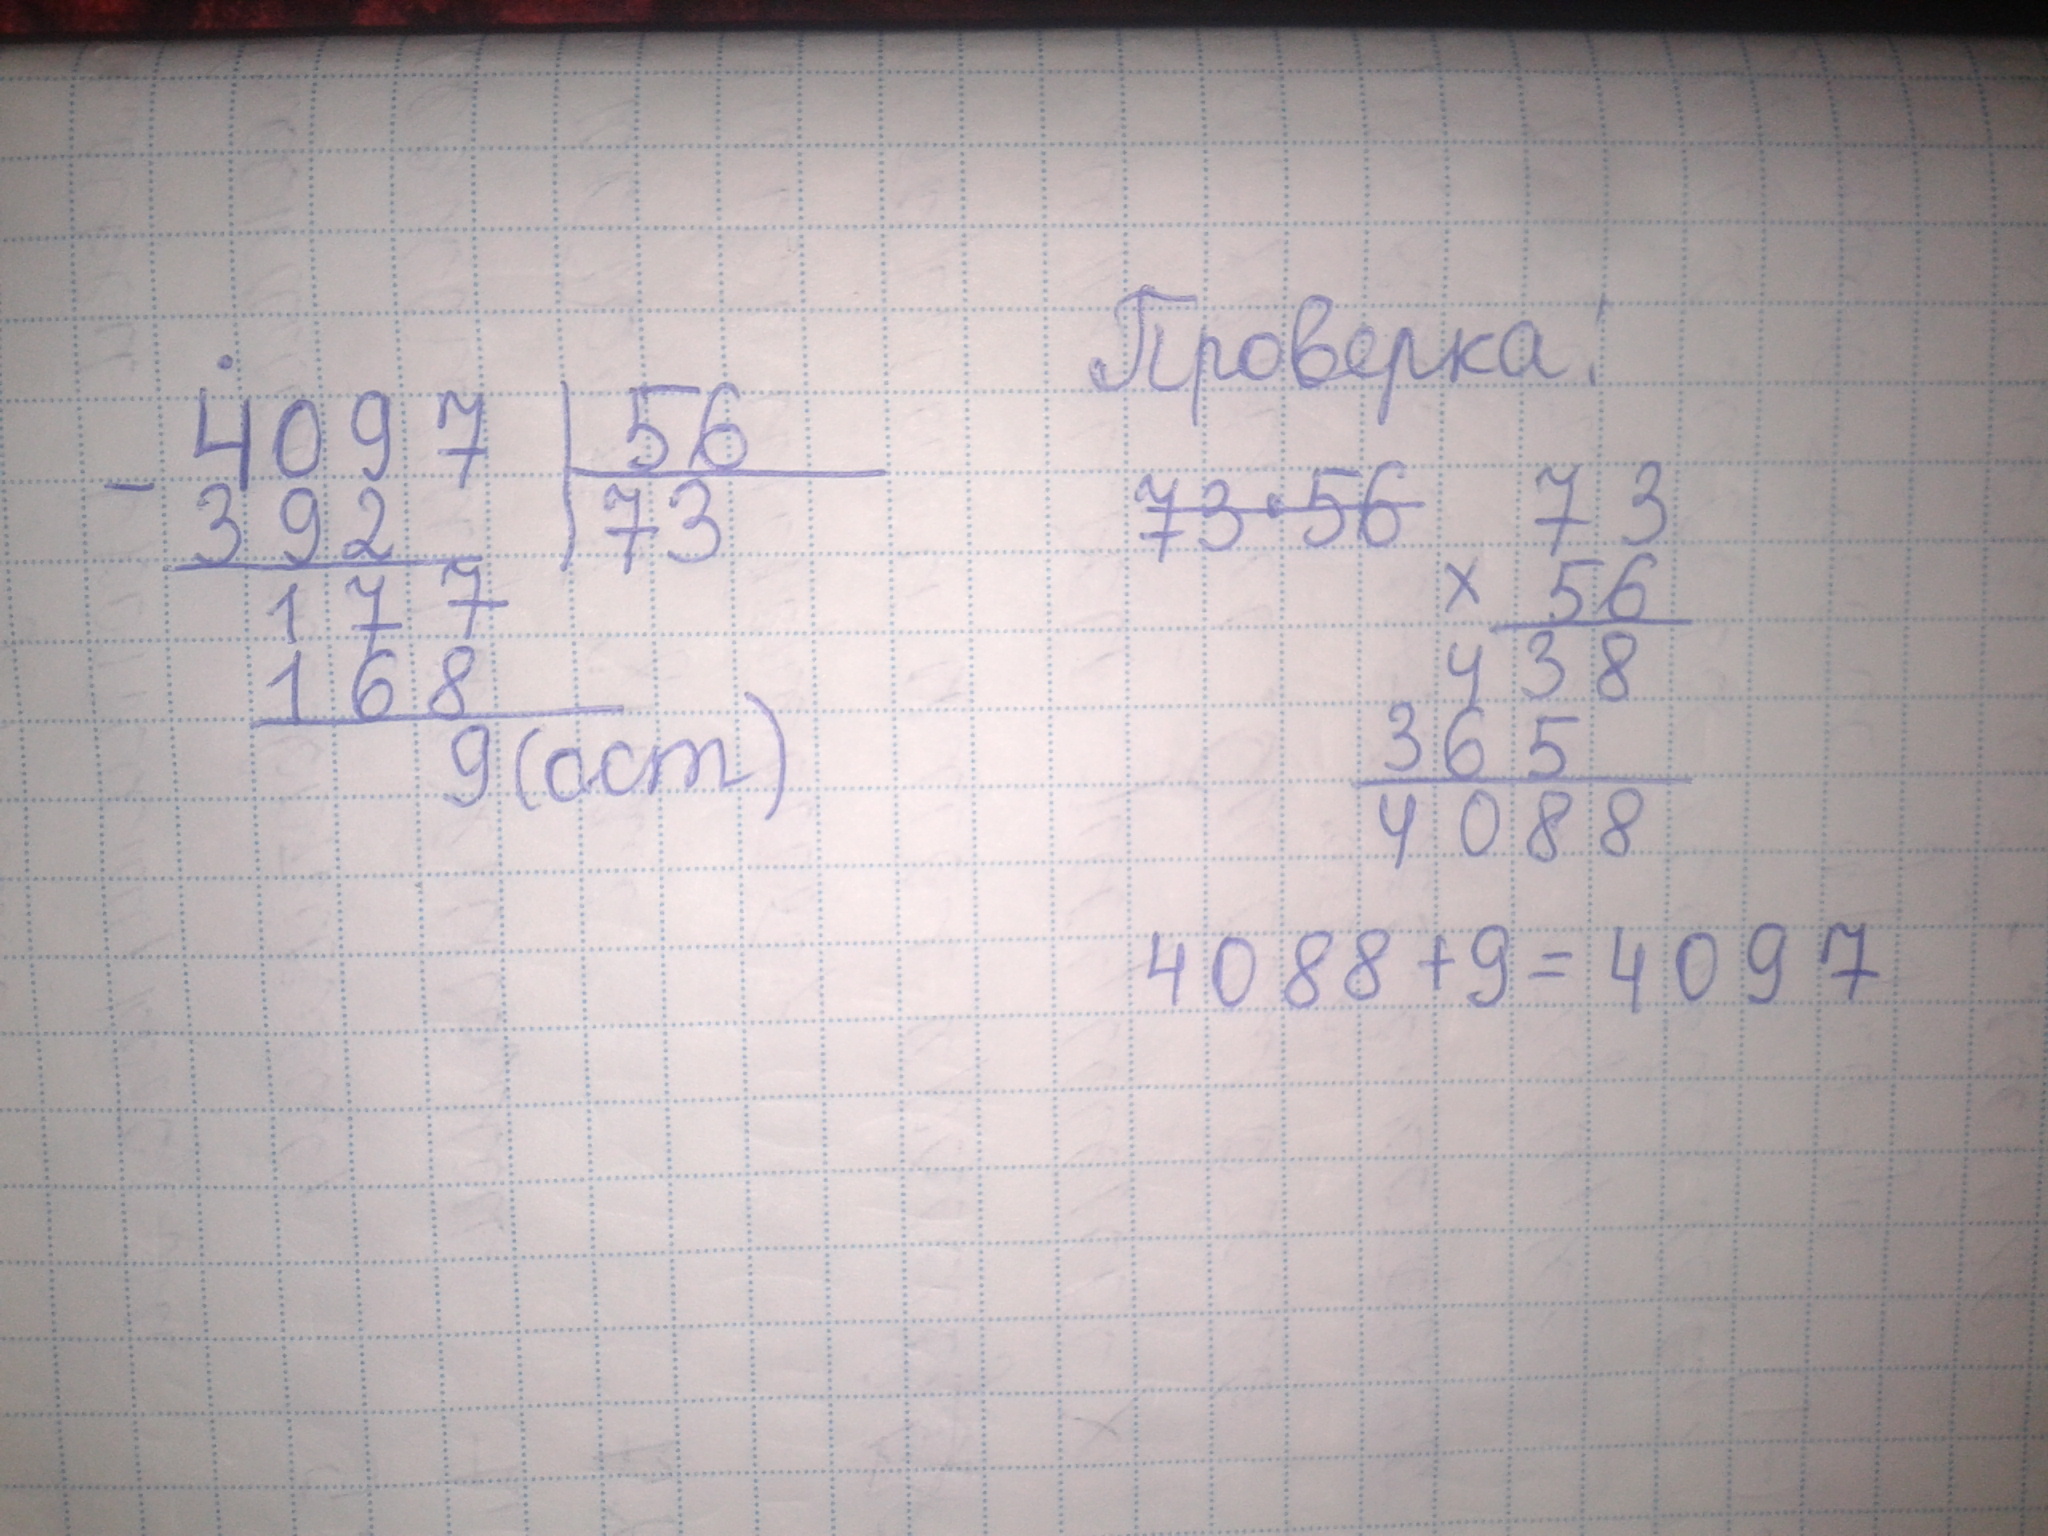 4097 56
- 392 73
177
168
9 (ост)
Проверка:
73·56 73
x 56
438
365
4088
4088+9=4097